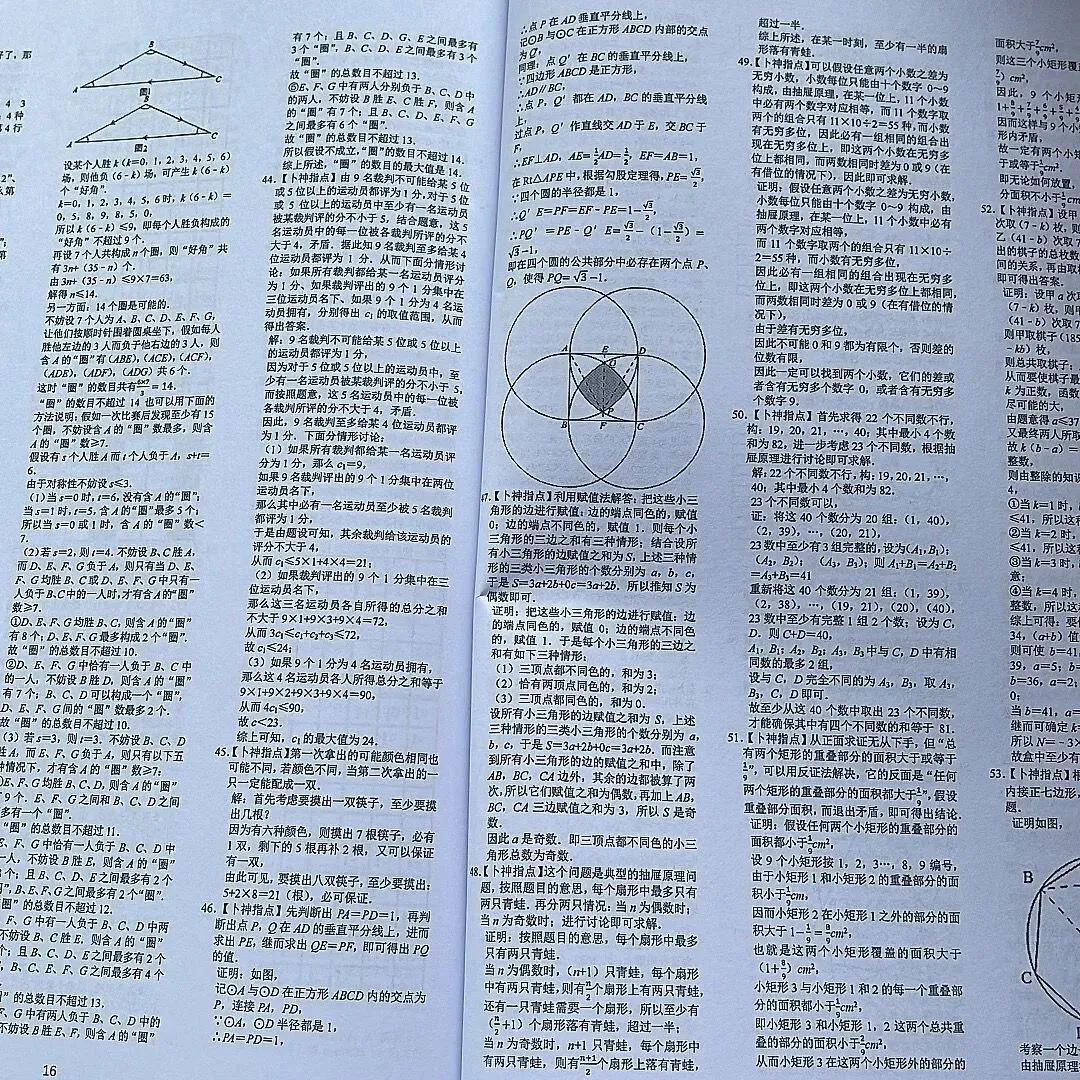 了，那
4 3
4种
4行
2”、
么第
第
A B C
图1
A B C
图2
设某个人胜k(k=0，1，2，3，4，5，6)
场，则他负(6-k)场，可产生k(6-k)
个“好角”.
k=0，1，2，3，4，5，6时，k(6-k)=
0，5，8，9，8，5，0，
所以k(6-k)≤9，即每个人胜负构成的
“好角”不超过9个.
再设7个人共构成n个圈，则“好角”共
有3n+(35-n)个.
由3n+(35-n)≤9×7=63，
解得n≤14.
另一方面：14个圈是可能的.
不妨设7个人为A、B、C、D、E、F、G，
让他们按顺时针围着圆桌坐下，假如每人
胜他左边的3人而负于他右边的3人，则
含A的“圈”有(ABE)，(ACE)，(ACF)，
(ADE)，(ADF)，(ADG)共6个.
这时“圈”的数目共有6×7/3=14.
“圈”的数目不超过14也可以用下面的
方法说明：假如一次比赛后发现至少有15
个圈，不妨设含A的“圈”数最多，则含
A的“圈”数≥7.
假设有s个人胜A而t个人负于A，s+t=
6.
由于对称性不妨设s≤3.
(1)当s=0时，t=6，没有含A的“圈”；
当s=1时，t=5，含A的“圈”最多5个；
所以当s=0或1时，含A的“圈”数＜
7.
(2)若s=2，则t=4.不妨设B、C胜A，
而D、E、F、G负于A，则只有当D、E、
F、G均胜B、C或D、E、F、G中只有一
人负于B、C中的一人时，才有含A的“圈”
数≥7.
①D、E、F、G均胜B、C，则含A的“圈”
有8个；D、E、F、G最多构成2个“圈”.
故“圈”的总数目不超过10.
②D、E、F、G中恰有一人负于B、C中
的一人，不妨设B胜D，则含A的“圈”
有7个；B、C、D可以构成一个“圈”，
D、E、F、G间的“圈”数最多2个.
故“圈”的总数目不超过10.
(3)若s=3，则t=3.不妨设B、C、D
胜A，而E、F、G负于A，则只有以下五
种情况下，才有含A的“圈”数≥7；
①E、F、G均胜B、C、D，则含A的“圈”
9个.E、F、G之间和B、C、D之间
多有一个“圈”.
“圈”的总数目不超过11.
E、F、G中恰有一人负于B、C、D中
一人，不妨设B胜E，则含A的“圈”
8个；且B、C、D、E之间最多有2个
“圈”，B、E、F、G之间最多有2个“圈”.
“圈”的总数目不超过12.
F、G中有一人负于B、C、D中两
不妨设B、C胜E，则含A的“圈”
个；且B、C、D、E之间最多有2个
B、C、E、F、G之间最多有4个
“圈”的总数目不超过13.
F、G中有两人负于B、C、D中的
不妨设B胜E、F，则含A的“圈”
16
有7个；且B、C、D、G、E之间最多有
3个“圈”，B、C、D、E之间最多有3个
“圈”.
故“圈”的总数目不超过13.
⑤E、F、G中有两人分别负于B、C、D中
的两人，不妨设B胜E、C胜F，则含A
的“圈”有7个；且B、C、D、E、F、G
之间最多有6个“圈”.
故“圈”的总数目不超过13.
所以假设不成立.“圈”的数目不超过14.
综上所述，“圈”的数目的最大值是14.
44.【卜神指点】由9名裁判不可能给某5位
或5位以上的运动员都评为1分，对于5位
或5位以上的运动员中至少有一名运动员
被某裁判评的分不小于5，结合题意，这5
名运动员中的每一位被各裁判所评的分不
大于4，矛盾.据此知9名裁判至多给某4
位运动员都评为1分.从而下面分情形讨
论，如果所有裁判都给某一名运动员评分
为1分、如果裁判评出的9个1分集中在
三位运动员名下、如果9个1分为4名运
动员拥有，分别得出c₁的取值范围，从而
得出答案.
解：9名裁判不可能给某5位或5位以上
的运动员都评为1分，
因为对于5位或5位以上的运动员中，至
少有一名运动员被某裁判评的分不小于5，
而按照题意，这5名运动员中的每一位被
各裁判所评的分不大于4，矛盾.
因此，9名裁判至多给某4位运动员都评
为1分.下面分情形讨论：
(1)如果所有裁判都给某一名运动员评
分为1分，那么c₁=9，
如果9名裁判评出的9个1分集中在两位
运动员名下，
那么其中必有一名运动员至少被5名裁判
都评为1分，
于是由题设可知，其余裁判给该运动员的
评分不大于4，
从而c₁≤5×1+4×4=21；
(2)如果裁判评出的9个1分集中在三
位运动员名下，
那么这三名运动员各自所得的总分之和
不大于9×1+9×3+9×4=72，
从而3c₁≤c₁+c₂+c₃≤72，
故c₁≤24；
(3)如果9个1分为4名运动员拥有，
那么这4名运动员各人所得总分之和等于
9×1+9×2+9×3+9×4=90，
从而4c₁≤90，
故c＜23.
综上可知，c₁的最大值为24.
45.【卜神指点】第一次拿出的可能颜色相同也
可能不同，若颜色不同，当第二次拿出的一
只一定能配成一双.
解：首先考虑要摸出一双筷子，至少要摸
出几根？
因为有六种颜色，则摸出7根筷子，必有
1双，剩下的5根再补2根，又可以保证
有一双，
由此可见，要摸出八双筷子，至少要摸出：
5+2×8=21(根)，必可保证.
46.【卜神指点】先判断出PA=PD=1，再判
断出点P，Q在AD的垂直平分线上，进而
求出PE，继而求出QE=PF，即可得出PQ
的值.
证明：如图，
记⊙A与⊙D在正方形ABCD内的交点为
P，连接PA，PD，
∵⊙A，⊙D半径都是1，
∴PA=PD=1，
∴点P在AD垂直平分线上，
记⊙B与⊙C在正方形ABCD内部的交点
为Q′，
同理：点Q′在BC的垂直平分线上，
∵四边形ABCD是正方形，
∴AD∥BC，
∴点P，Q′都在AD，BC的垂直平分线
上，
过点P，Q′作直线交AD于E，交BC于
F，
∴EF⊥AD，AE=1/2AD=1/2，EF=AB=1，
在Rt△APE中，根据勾股定理得，PE=√3/2，
∵四个圆的半径都是1，
∴Q′E=PF=EF-PE=1-√3/2，
∴PQ′=PE-Q′E=√3/2-(1-√3/2)=
√3-1，
即在四个圆的公共部分中必存在两个点P、
Q，使得PQ=√3-1.
A E D
Q
P
B F C
47.【卜神指点】利用赋值法解答，把这些小三
角形的边进行赋值：边的端点同色的，赋值
0；边的端点不同色的，赋值1.则每个小
三角形的三边之和有三种情形；结合设所
有小三角形的边赋值之和为S，上述三种情
形的三类小三角形的个数分别为a，b，c，
于是S=3a+2b+0c=3a+2b.所以推知S为
偶数即可.
证明：把这些小三角形的边进行赋值：边
的端点同色的，赋值0；边的端点不同色
的，赋值1.于是每个小三角形的三边之
和有如下三种情形：
(1)三顶点都不同色的，和为3；
(2)恰有两顶点同色的，和为2；
(3)三顶点都同色的，和为0.
设所有小三角形的边赋值之和为S，上述
三种情形的三类小三角形的个数分别为a，
b，c，于是S=3a+2b+0c=3a+2b.而注意
到所有小三角形的边的赋值之和中，除了
AB，BC，CA边外，其余的边都被算了两
次，所以它们赋值之和为偶数，再加上AB，
BC，CA三边赋值之和为3，所以S是奇
数.
因此a是奇数.即三顶点都不同色的小三
角形总数为奇数.
48.【卜神指点】这个问题是典型的抽屉原理问
题，按照题目的意思，每个扇形中最多只有
两只青蛙.再分两只情况：当n为偶数时；
当n为奇数时；进行讨论即可求解.
证明：按照题目的意思，每个扇形中最多
只有两只青蛙.
当n为偶数时，(n+1)只青蛙，每个扇形
中有两只青蛙，则有n/2个扇形上有两只青蛙，
还有一只青蛙需要一个扇形，所以至少有
(n/2+1)个扇形落有青蛙，超过一半；
当n为奇数时，n+1只青蛙，每个扇形中
有两只青蛙，则有n+1/2个扇形上落有青蛙，
超过一半.
综上所述，在某一时刻，至少有一半的扇
形落有青蛙.
49.【卜神指点】可以假设任意两个小数之差为
无穷小数，小数每位只能由十个数字0～9
构成，由抽屉原理，在某一位上，11个小数
中必有两个数字对应相等，而11个数字取
两个的组合只有11×10÷2=55种，而小数
有无穷多位，因此必有一组相同的组合出
现在无穷多位上，即这两个小数在无穷多
位上都相同，而两数相同时差为0或9(在
有借位的情况下)，因此即可求解.
证明：假设任意两个小数之差为无穷小数，
小数每位只能由十个数字0～9构成，由
抽屉原理，在某一位上，11个小数中必有
两个数字对应相等，
而11个数字取两个的组合只有11×10÷
2=55种，而小数有无穷多位，
因此必有一组相同的组合出现在无穷多
位上，即这两个小数在无穷多位上都相同，
而两数相同时差为0或9(在有借位的情
况下)，
由于差有无穷多位，
因此不可能0和9都为有限个，否则差的
位数有限，
因此一定可以找到两个小数，它们的差或
者含有无穷多个数字0，或者含有无穷多
个数字9.
50.【卜神指点】首先求得22个不同数不行，
构：19，20，21，…，40；其中最小4个数
和为82，进一步考虑23个不同数，根据抽
屉原理进行讨论即可求解.
解：22个不同数不行，构：19，20，21，…，
40；其中最小4个数和为82.
23个不同数可以，
证：将这40个数分为20组：(1，40)，
(2，39)，…，(20，21)，
23数中至少有3组完整的，设为(A₁，B₁)；
(A₂，B₂)；(A₃，B₃)；则A₁+B₁=A₂+B₂
=A₃+B₃=41
重新将这40个数分为21组：(1，39)，
(2，38)，…，(19，21)，(20)，(40)，
23数中至少有完整1组2个数：设为C，
D.则C+D=40，
A₁，B₁；A₂，B₂；A₃，B₃中与C，D中有相
同数的最多2组，
设与C，D完全不同的为A₃，B₃，取A₃，
B₃，C，D即可.
故至少从这40个数中取出23个不同数，
才能确保其中有四个不同数的和等于81.
51.【卜神指点】从正面求证无从下手，但“总
有两个矩形的重叠部分的面积大于或等于
1/9”，可以用反证法解决，它的反面是“任何
两个矩形的重叠部分的面积都大于1/9”，假设
重叠部分面积，而退出矛盾，即可得出结论.
证明：假设任何两个小矩形的重叠部分的
面积都小于1/9cm²，
设9个小矩形按1，2，3…，8，9编号，
由于小矩形1和小矩形2的重叠部分的面
积小于1/9cm，
因而小矩形2在小矩形1之外的部分的面
积大于1-1/9=8/9cm²，
也就是这两个小矩形覆盖的面积大于
(1+8/9)cm²，
小矩形3与小矩形1和2的每一个重叠部
分的面积都小于1/9cm²，
即小矩形3和小矩形1，2这两个总共重
叠的部分的面积小于2/9cm²，
从而小矩形3在这两个小矩形外的部分的
面积大于7/9cm²，
则这三个小矩形覆盖
)cm²，
因此，9个小矩形
因而这样与9个小
形内矛盾，
故一定有两个小矩
于或等于
即无论如何放置，
分面积不小于1/9cm
52.【卜神指点】设甲
次取(7-k)枚，则
乙(41-b)次取7
出的棋子的总枚数
间的关系，再由取
即可得出答案.
证明：设甲a次
(7-k)枚，则甲
(41-b)次取7
则甲取棋子[185
-kb)枚，
则总共取棋子：
从而要使棋子最
k为正数，函数
尽可能的大，
由题意得a≤37
又最终两人所取
故k(b-a)=
整数，
则由整除的知
4，
①当k=1时，
≤41，所以这种
②当k=2时，
≤41，所以这
③当k=3时，
意；
④当k=4时，
整数，所以这
综上可得：要
34，(a+b)值
则可使b=41
39，a=5；b=
b=36，a=2；
0；
当b=41，a=
继而可确定k
所以N=-3×
故盒中至少有
53.【卜神指点】根
内接正七边形，
题.
证明如图，
B
C
考察一个边
由抽屉原理